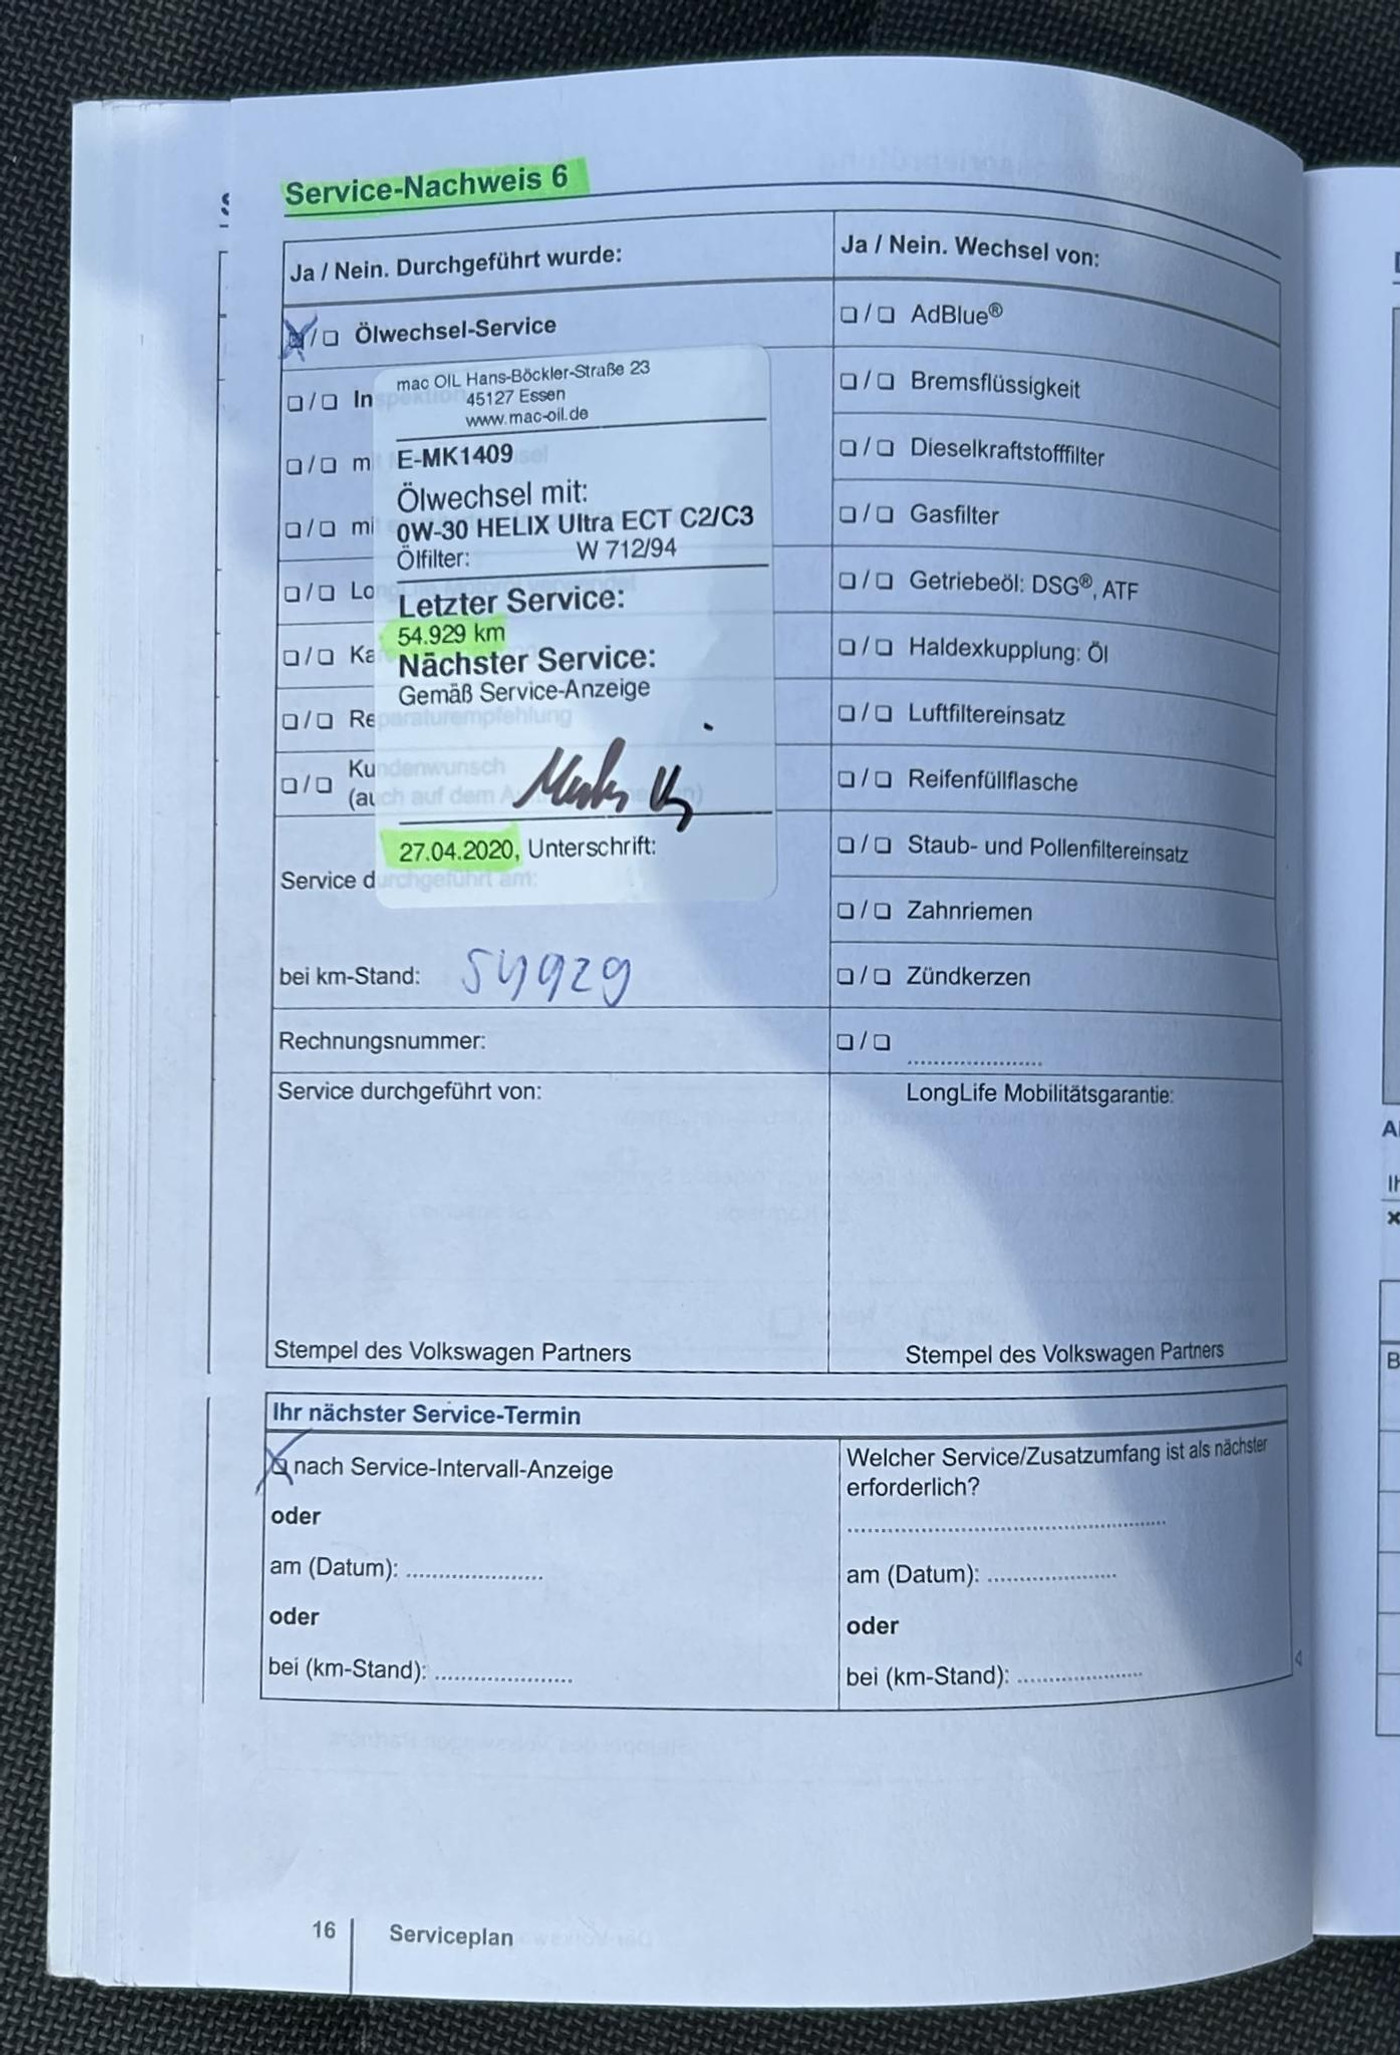 Service-Nachweis 6
Ja / Nein. Durchgeführt wurde:
Ölwechsel-Service
In
m
mi
Lo
Ka
Re
Reparaturempfehlung
Kundenwunsch
(auch auf dem
mac OIL Hans-Böckler-Straße 23
45127 Essen
www.mac-oil.de
E-MK1409
Ölwechsel mit:
0W-30 HELIX Ultra ECT C2/C3
Ölfilter: W 712/94
Letzter Service:
54.929 km
Nächster Service:
Gemäß Service-Anzeige
27.04.2020, Unterschrift:
Service durchgeführt am:
bei km-Stand: 54929
Rechnungsnummer:
Service durchgeführt von:
Stempel des Volkswagen Partners
Ja / Nein. Wechsel von:
AdBlue®
Bremsflüssigkeit
Dieselkraftstofffilter
Gasfilter
Getriebeöl: DSG®, ATF
Haldexkupplung: Öl
Luftfiltereinsatz
Reifenfüllflasche
Staub- und Pollenfiltereinsatz
Zahnriemen
Zündkerzen
LongLife Mobilitätsgarantie:
Stempel des Volkswagen Partners
Ihr nächster Service-Termin
nach Service-Intervall-Anzeige
oder
am (Datum):
oder
bei (km-Stand):
Welcher Service/Zusatzumfang ist als nächster
erforderlich?
am (Datum):
oder
bei (km-Stand):
16 Serviceplan